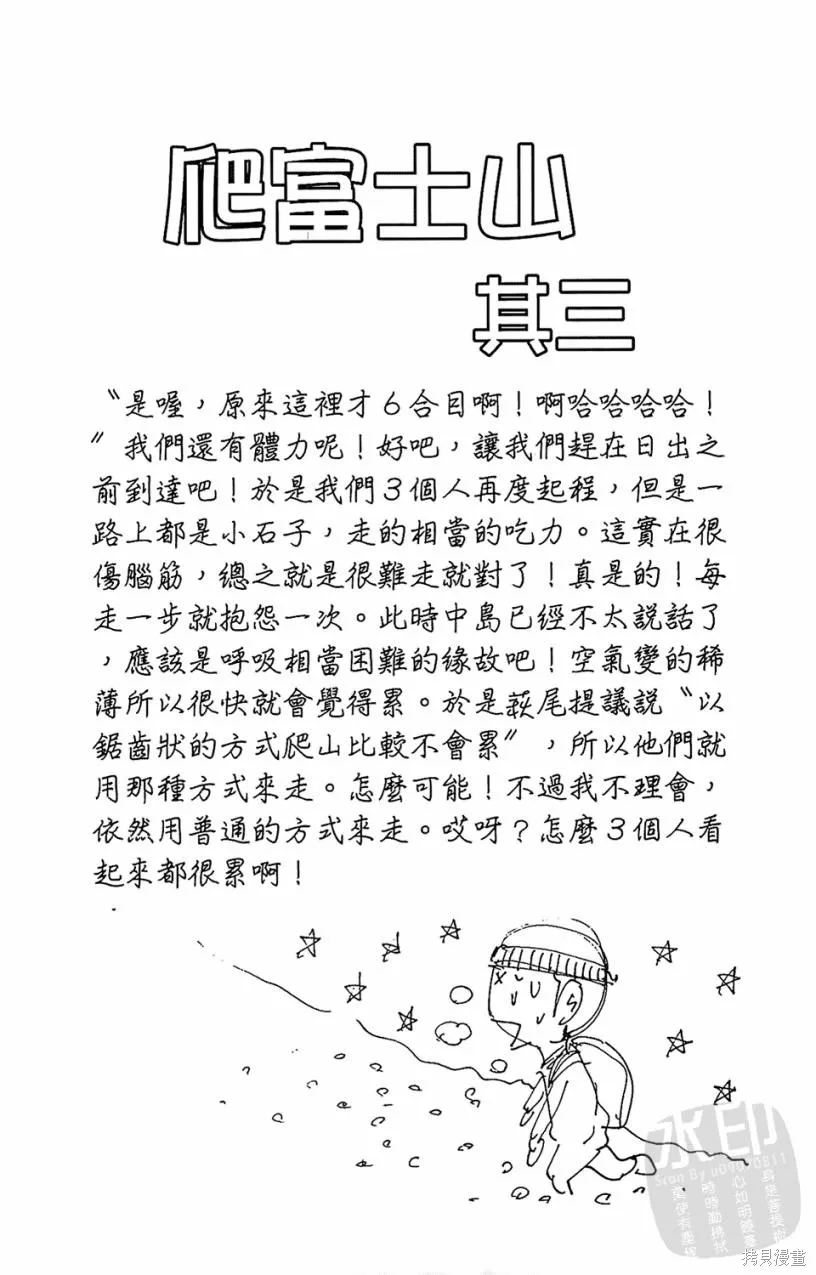 爬富士山
其三
〝是喔，原來這裡才６合目啊！啊哈哈哈哈！
〞我們還有體力呢！好吧，讓我們趕在日出之
前到達吧！於是我們３個人再度起程，但是一
路上都是小石子，走的相當的吃力。這實在很
傷腦筋，總之就是很難走就對了！真是的！每
走一步就抱怨一次。此時中島已經不太說話了
，應該是呼吸相當困難的緣故吧！空氣變的稀
薄所以很快就會覺得累。於是萩尾提議說〝以
鋸齒狀的方式爬山比較不會累〞，所以他們就
用那種方式來走。怎麼可能！不過我不理會，
依然用普通的方式來走。哎呀？怎麼３個人看
起來都很累啊！
水印
Scan By u09040811
身是菩提樹
心如明鏡臺
時時勤拂拭
拷貝漫畫